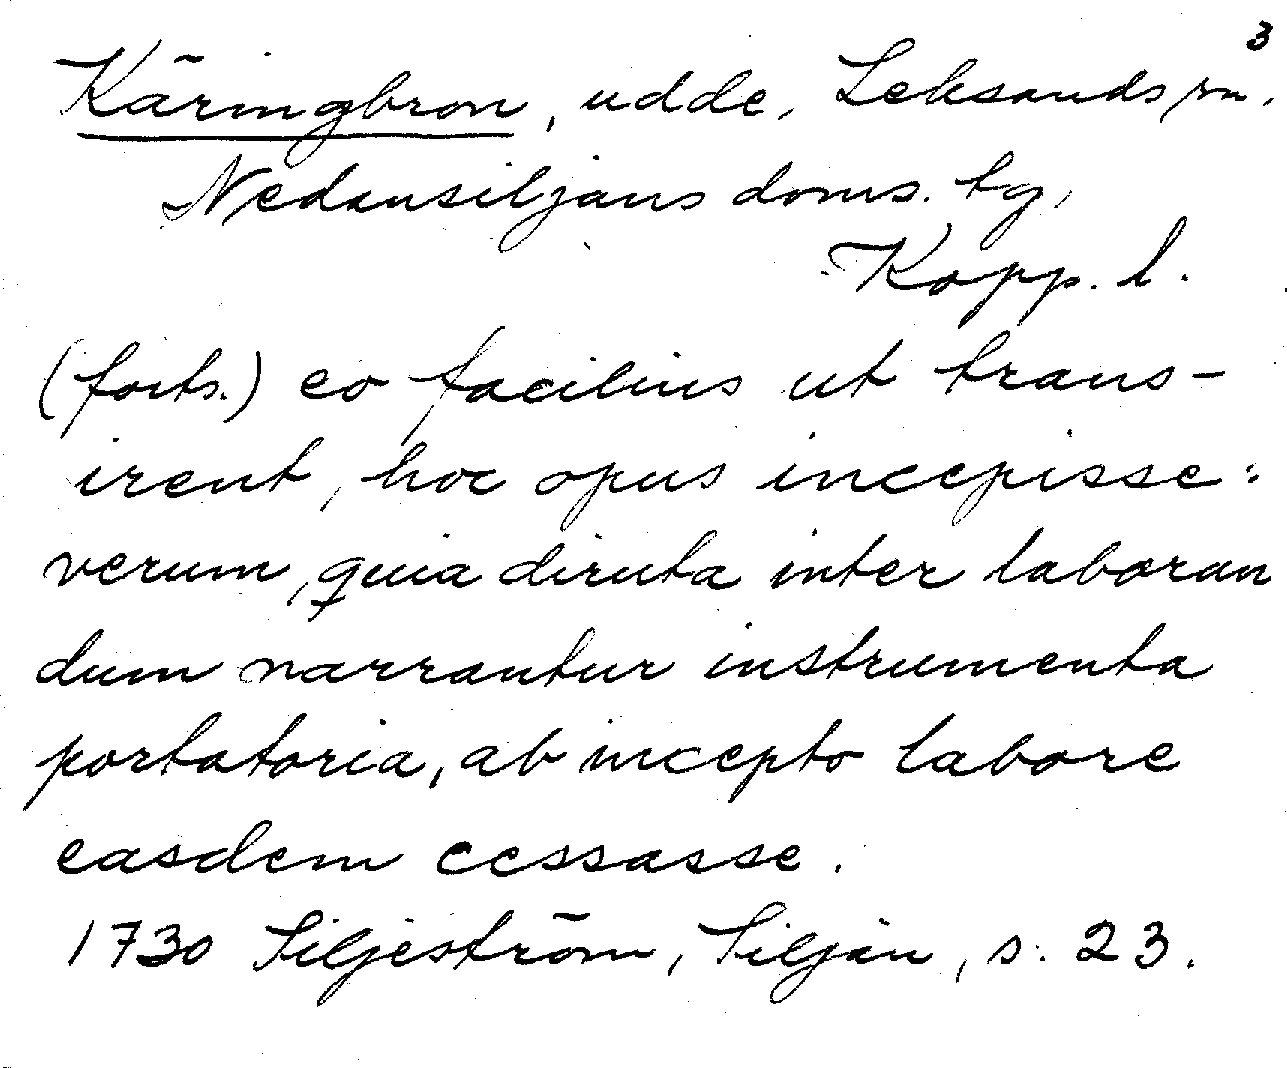 3
Käringbron, udde, Leksands sn.
Nedansiljans doms. tg,
Kopp. l.
(forts.) eo facilius ut trans-
irent, hoc opus incepisse:
verum, quia diruta inter laboran
dum narrantur instrumenta
portatoria, ab incepto labore
easdem cessasse.
1730 Siljeström, Siljan, s. 23.